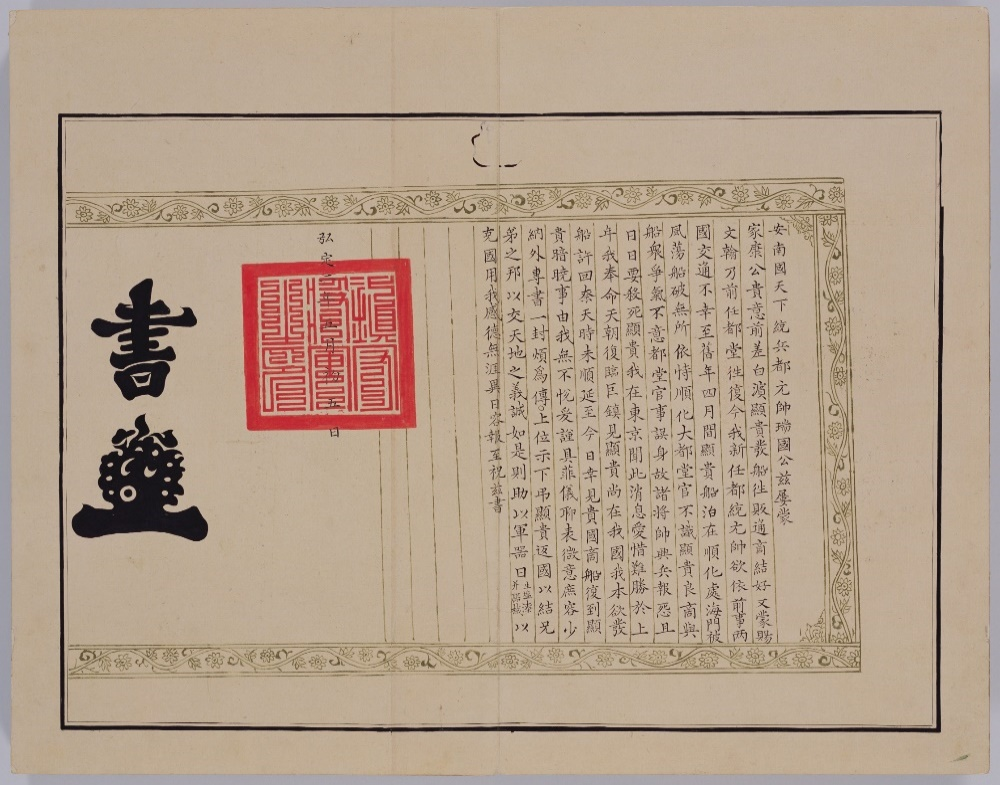 安南國天下統兵都元帥瑞國公玆屢蒙
家康公貴意前差白濵顯貴發船徃販通商結好又蒙賜
文翰乃前任都堂徃復今我新任都統元帥欲依前事兩
國交通不幸至舊年四月間顯貴船泊在順化處海門被
風蕩船破無所依恃順化大都堂官不識顯貴良商與
船衆爭氣不意都堂官事誤身故諸將帥興兵報怨且
日日要殺死顯貴我在東京聞此消息愛惜難勝於上
年我奉命天朝復臨巨鎮見顯貴尚在我國我本欲發
船許回奈天時未順延至今日幸見貴國商船復到顯
貴曉事由我無不悅爰謹具菲儀聊表微意庶容少
納外專書一封煩爲傳上位示下弔顯貴返國以結兄
弟之邦以交天地之義誠如是則助以軍器以
充國用我感德無涯異日容報至祝玆書
弘定二年五月初五日
書